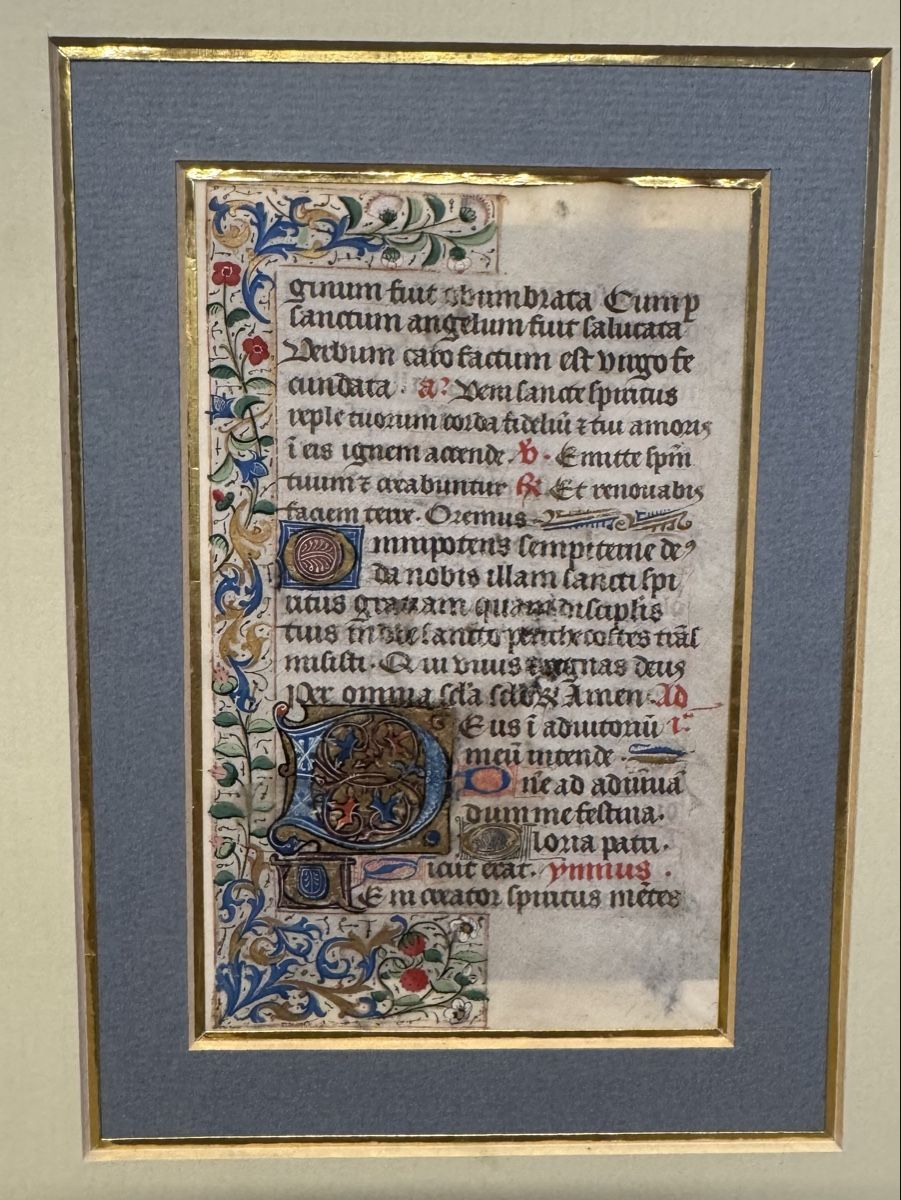 ginum fuit obumbrata Cum p
sanctum angelum fuit salutata
Verbum caro factum est virgo fe
cundata. a? Veni sancte spiritus
reple tuorum corda fideliū ⁊ tui amoris
ī eis ignem accende. V. Emitte spm̄
tuum ⁊ creabuntur ℟ Et renouabis
faciem terre. Oremus
Omnipotens sempiterne deꝰ
da nobis illam sancti spi
ritus graciam quam disciplis
tuis in die sancto penthecostes
misisti. Qui viuis ⁊ regnas deus
Per omnia scl̄a Amen. Ad
Deus ī adiutoriū i.
meū intende
Dn̄e ad adiuuā
dum me festina.
Gloria patri.
Sicut erat. ymnus.
Veni creator spiritus mētes